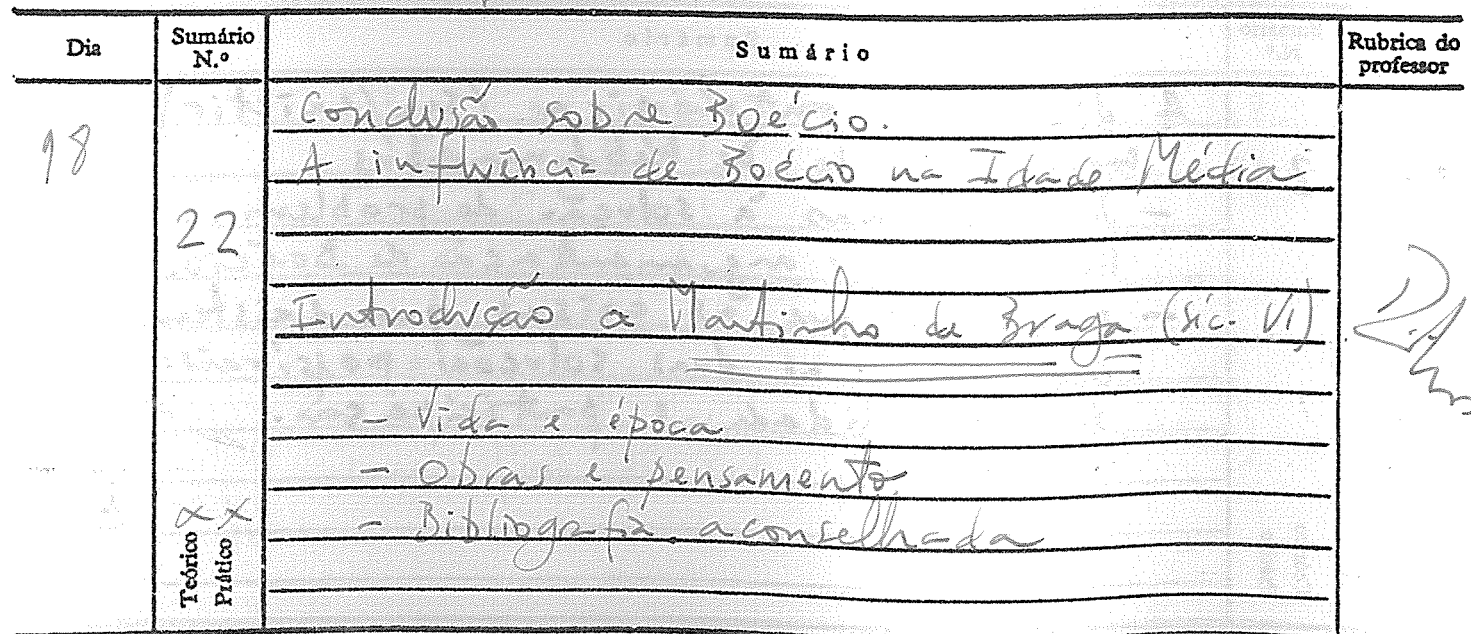 Dia
Sumário N.º
Sumário
Rubrica do professor
18
22
Conclusão sobre Boécio.
A influência de Boécio na Idade Média
Introdução a Martinho de Braga (séc. VI)
- Vida e época
- Obras e pensamento
- Bibliografia aconselhada
x x
Teórico
Prático